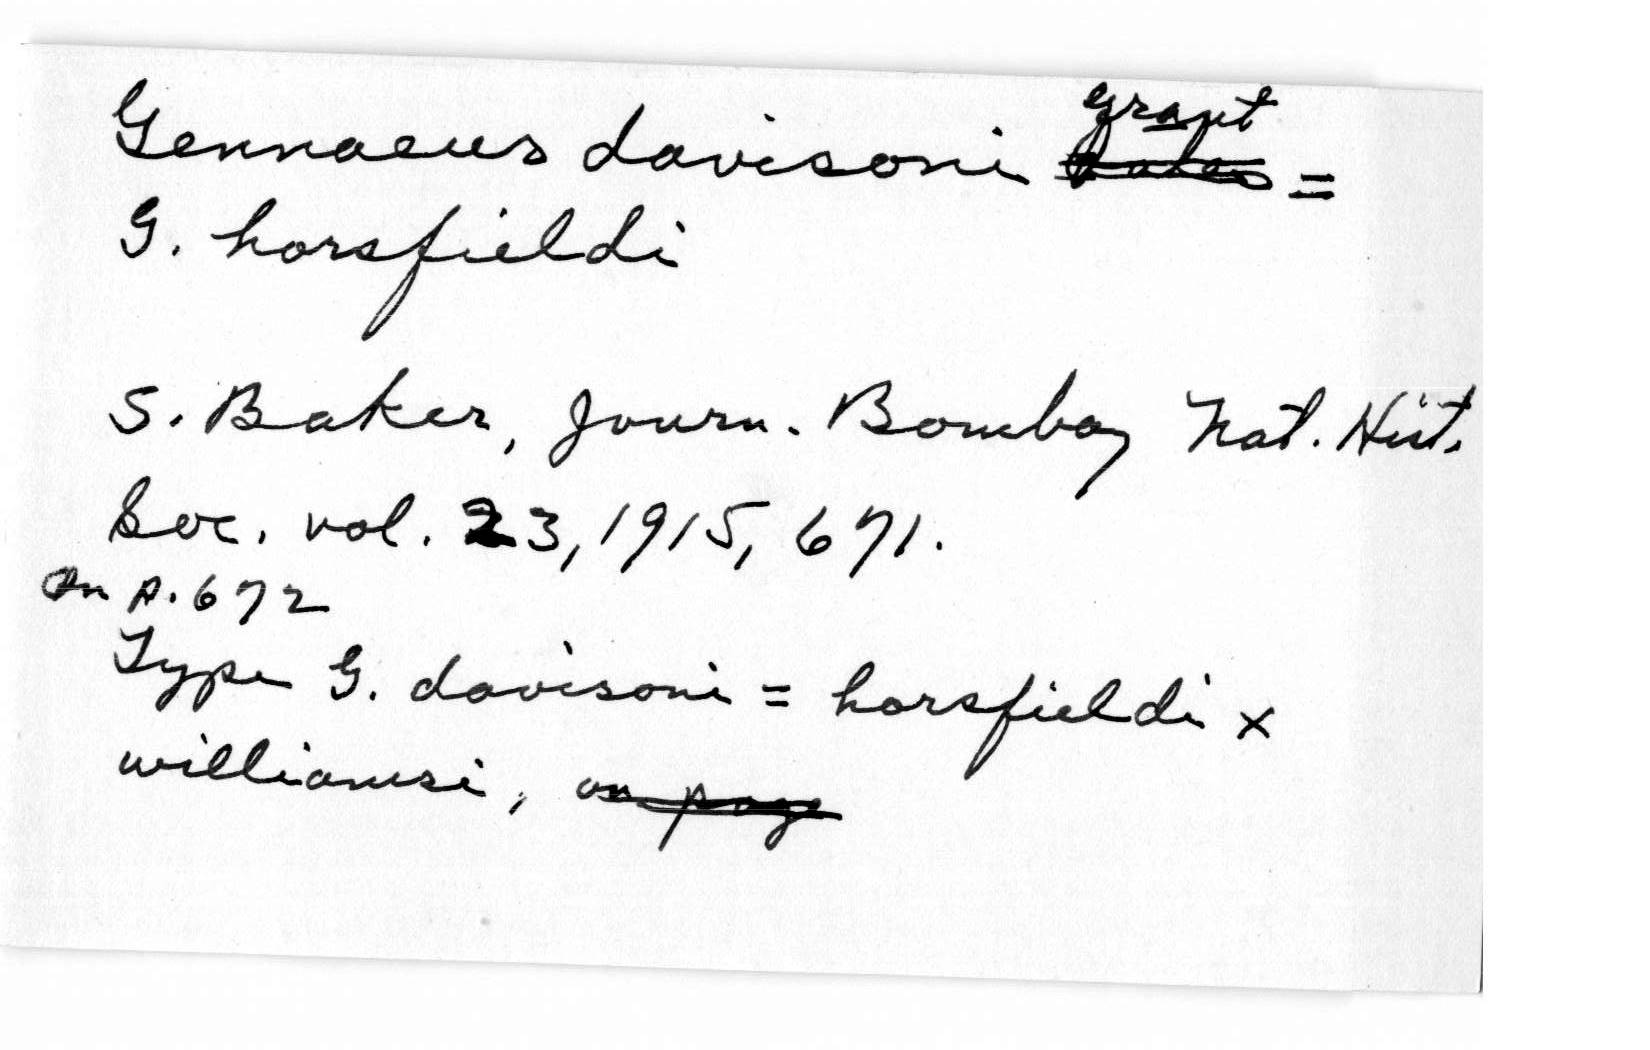 Gennaeus davisoni Grant =
G. horsfieldi
S. Baker, Journ. Bombay Nat. Hist.
Soc. vol. 23, 1915, 671.
On p. 672
Type G. davisoni = horsfieldi x
williamsi, on page